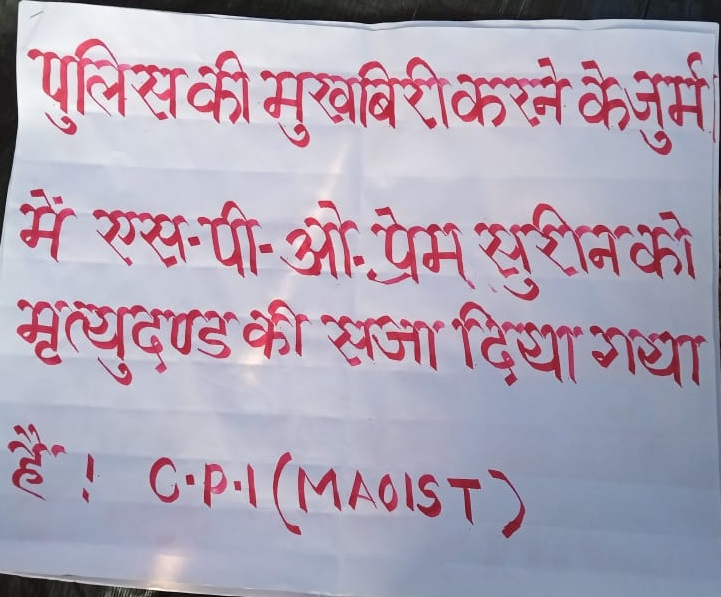 पुलिस की मुखबिरी करने के जुर्म
में एस-पी-ओ. प्रेम सुरीन को
मृत्युदण्ड की सजा दिया गया
है ! C.P.I (MAOIST)